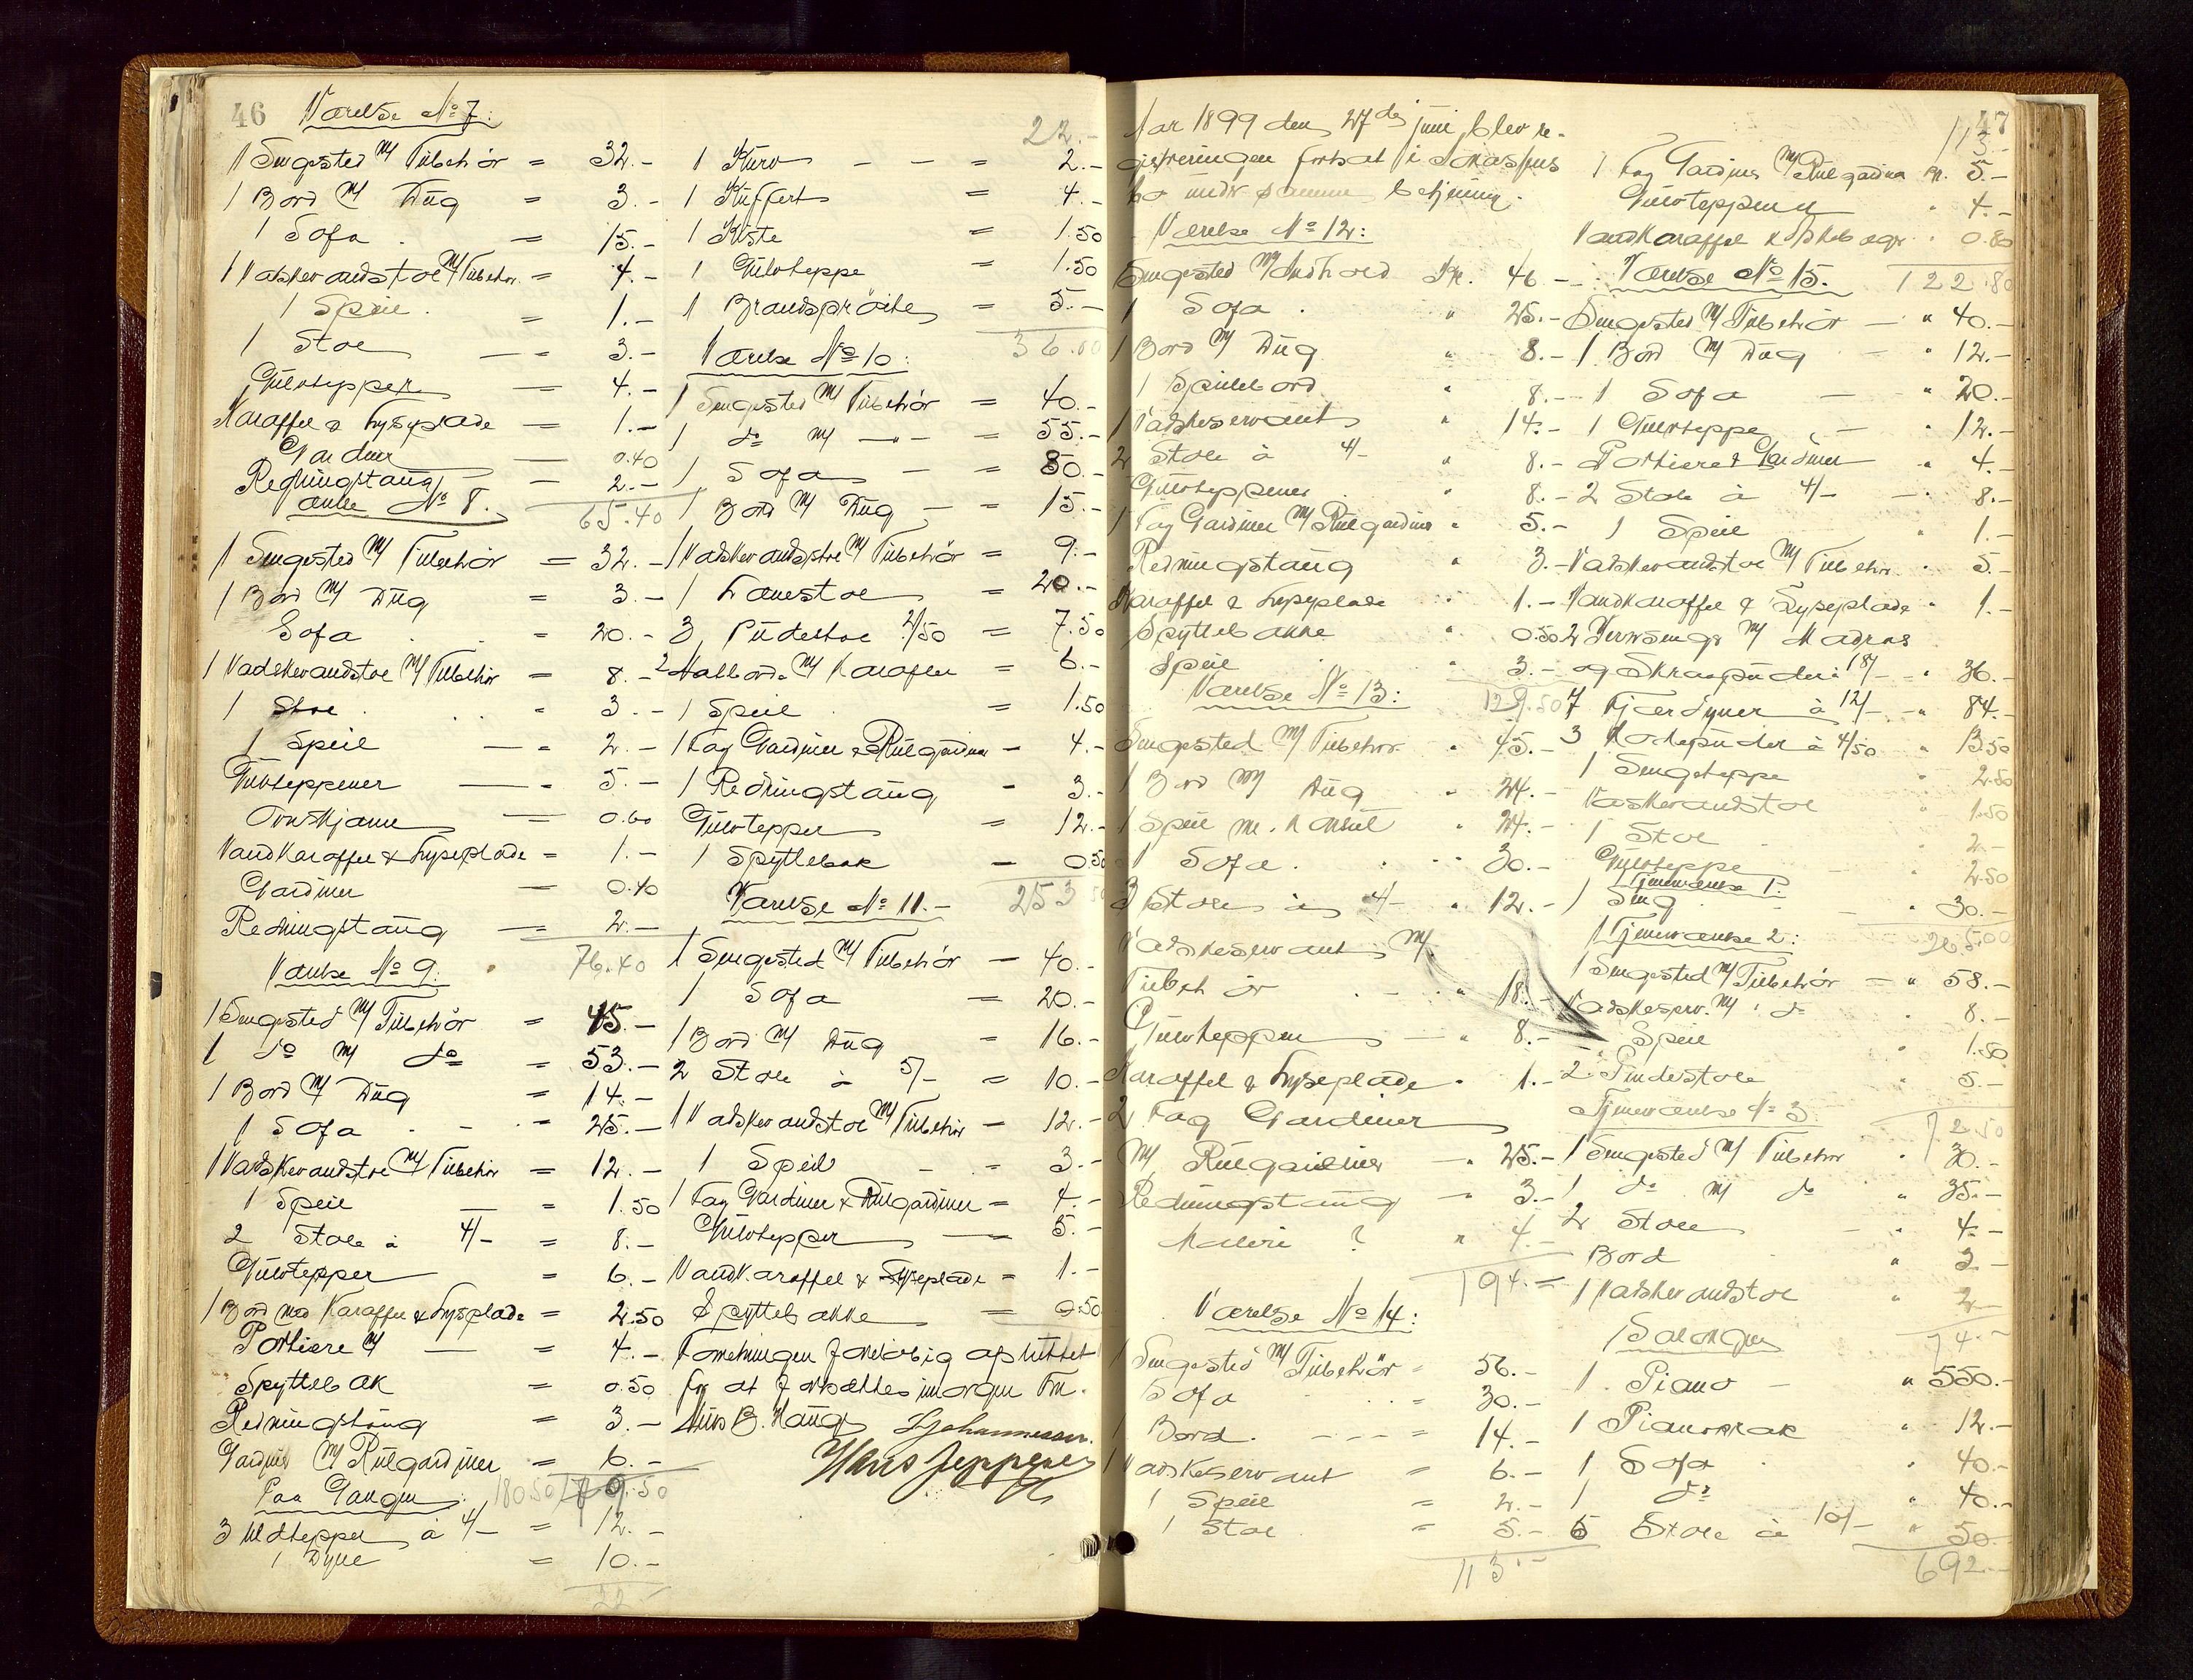 46
Værelse No 7:
1 Sengested m/ Tilbehör = 32.-
1 Bord m/ Dug = 3.-
1 Sofa = 15.-
1 Vaskevandstol m/ Tilbehör = 4.-
1 Speil = 1.-
1 Stol - = 3.-
Gulvtepper = 4.-
Karaffel & Lyseplade = 1.-
Gardiner - 0.40
Redningstaug - 2.-
65.40
Værelse No 8.
1 Sengested m/ Tilbehör = 32.-
1 Bord m/ Dug = 3.-
Sofa = 20.-
1 Vadskevandstol m/ Tilbehör = 8.-
1 Stol = 3.-
1 Speil - = 2.-
Gulvteppener - = 5.-
Ovnskjærm = 0.60
Vandkaraffel & Lyseplade = 1.-
Gardiner = 0.40
Redningstaug = 2.-
76.40
Værelse No 9.
1 Sengested m/ Tilbehör = 45.-
1 do m/ do = 53.-
1 Bord m/ Dug = 14.-
1 Sofa - = 25.-
1 Vadskevandstol m/ Tilbehör = 12.-
1 Speil - = 1.50
2 Stole à 4/- = 8.-
Gulvtepper = 6.-
1 Bord med Karaffel & Lyseplade = 2.50
Portiere m/ - = 4.-
Spyttebak = 0.50
Redningstaug = 3.-
Gardiner m/ Rulgardiner = 6.-
180.50
Paa Gangen:
3 Uldtepper à 4/- = 12.-
1 Dyne = 10.-
22.-
22.-
1 Kurv - - = 2.-
1 Kuffert = 4.-
1 Kiste = 1.50
1 Gulvteppe = 1.50
1 Brandspröite = 5.-
36.00
Værelse No 10:
1 Sengested m/ Tilbehör = 40.-
1 do m/ -"- = 55.-
1 Sofa - = 80.-
1 Bord m/ Dug - = 15.-
1 Vadskevandstol m/ Tilbehör = 9.-
1 Lænestol = 20.-
3 Pudestole 2/50 = 7.50
2 Natborde m/ Karafler = 6.-
1 Speil = 1.50
1 Fag Gardiner & Rulgardiner = 4.-
1 Redningstaug = 3.-
Gulvtepper = 12.-
1 Spyttebak = 0.50
253
Værelse No 11.-
1 Sengested m/ Tilbehör = 40.-
1 Sofa = 20.-
1 Bord m/ Dug = 16.-
2 Stole à 5/- = 10.-
1 Vadskevandstol m/ Tilbehör = 12.-
1 Speil - = 3.-
1 Fag Gardiner & Rulgardiner = 4.-
Gulvtepper - 5.-
Vandkaraffel & Lyseplade = 1.-
Spyttebakke = 0.50
Forretningen foreløbig afsluttet
for at fortsættes imorgen Fm.
Nils B. Haug Johannessen.
Hans Jeppesen
47
Aar 1899 den 27de juni blev re-
gistreringen fortsat i Jonassens
bo under samme betjening.
Værelse No 12:
Sengested m/ Indhold Kr. 46.-
1 Sofa " 25.-
1 Bord m/ Dug " 8.-
1 Spillebord " 8.-
1 Vadskeservant " 14.-
2 Stole à 4/- " 8.-
Gulvteppener " 8.-
1 Fag Gardiner m/ Rulgardiner " 5.-
Redningstaug " 3.-
Karaffel & Lyseplade " 1.-
Spyttebakke " 0.50
Speil " 3.-
129.50
Værelse No 13:
Sengested m/ Tilbehör " 45.-
1 Bord m/ Dug " 24.-
1 Speil m. Konsul " 24.-
1 Sofa " 30.-
3 Stole à 4/- " 12.-
Vadskeservant m/
Tilbehör " 18.-
Gulvteppen " 8.-
Karaffel & Lyseplade " 1.-
2 Fag Gardiner
m/ Rulgardiner " 25.-
Redningstaug " 3.-
Maleri ? " 4.-
194.=
Værelse No 14:
1 Sengested m/ Tilbehör = 56.-
Sofa = 30.-
1 Bord - - - = 14.-
1 Vadskeservant = 6.-
1 Speil = 2.-
1 Stol = 5.-
113.-
113.-
1 Fag Gardiner m/ Rulgardin Kr. 5.-
Gulvteppener " 4.-
0.80
122.80
Værelse No 15.
Sengested m/ Tilbehör - " 40.-
1 Bord m/ Dug " 12.-
1 Sofa " 20.-
1 Gulvteppe " 12.-
Portiere & Gardiner " 4.-
2 Stole à 4/- 8.-
1 Speil " 1.-
Vadskevandstol m/ Tilbehör " 5.-
Vandkaraffel & Lyseplade " 1.-
2 Jernsenge m/ Madras
og Skraapuder 18/- " 36.-
7 Fjærdyner à 12/- " 84.-
3 Hodepuder à 4/50 " 13.50
1 Sengeteppe " 2.50
Vaskevandstol " 1.50
1 Stol " 2.-
Gulvteppe 2.50
Tjenerværelse 1:
1 Seng " 30.-
Tjenerværelse 2:
1 Sengested m/ Tilbehör - " 58.-
Vadskeserv. m/ do " 8.-
Speil " 1.50
2 Pindestole " 5.-
72.50
Tjenerværelse No 3
1 Sengested m/ Tilbehör " 30.-
1 do m/ do " 35.-
2 Stole " 4.-
Bord " 3.-
1 Vadskevandstol " 2.-
74.-
Salongen
1 Piano - " 550.-
1 Pianokrak " 12.-
1 Sofa " 40.-
1 do " 40.-
5 Stole à 10/- " 50.-
692.-